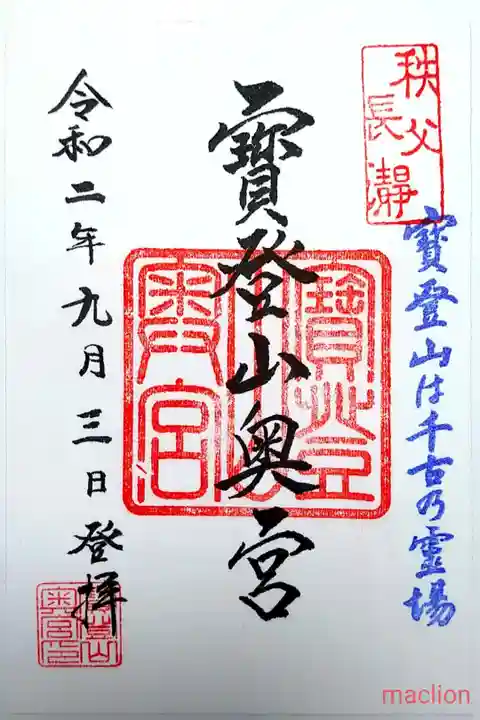 秩父
長瀞
寶登山は千古乃霊場
寶登山奥宮
寶登山
奥宮
令和二年九月三日登拝
寶登山
奥宮印
maclion